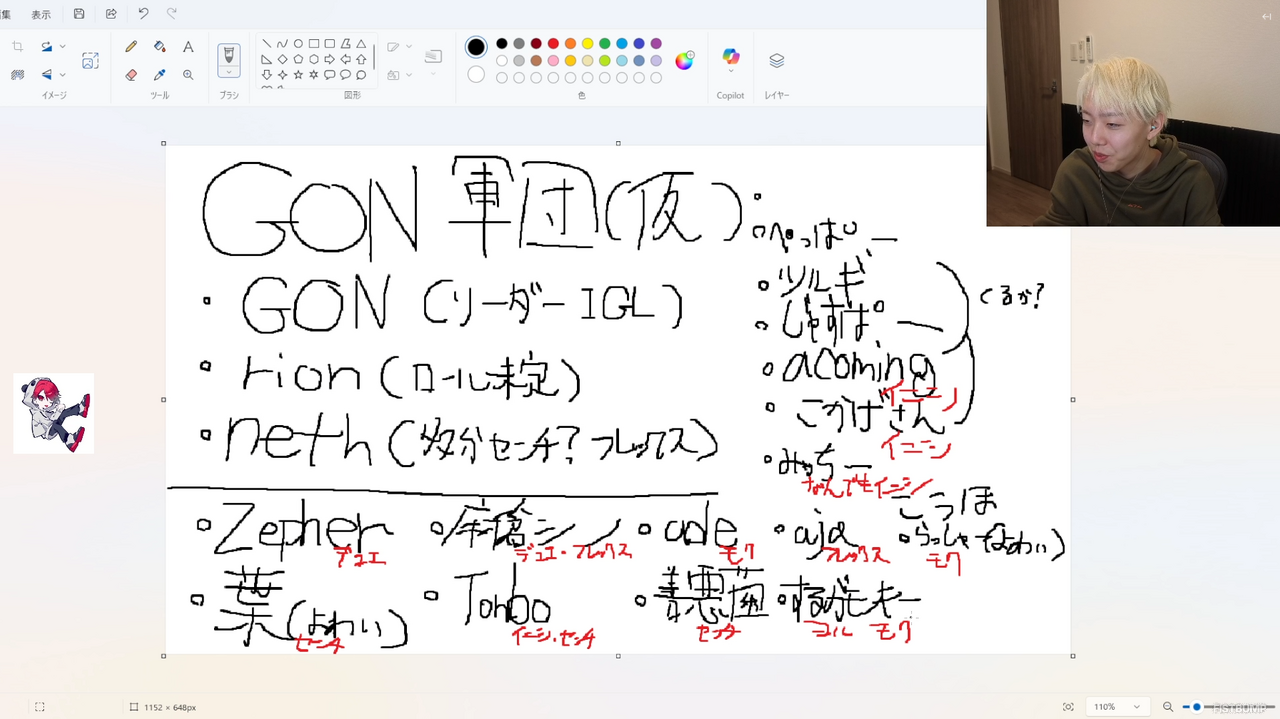 編集 表示
イメージ
ツール
ブラシ
図形
色
Copilot
レイヤー
GON 軍団(仮)
・GON (リーダー IGL)
・rion (ロール未定)
・neth (多分センチ? フレックス)
・ぺっぱー
・ツルギ
・じゃすぱー
・acoming
イニシ
・こかげさん
イニシ
・みっちー
なんでもイニシ
くるか?
こうほ
・Zepher
デュエ
シノ
デュエ・フレックス
・ade
モク
・aja
フレックス
・らっしゃー(よわい)
モク
・葉(よわい)
センチ
・Tonbo
イニシ・センチ
・善悪菌
センチ
・するがモンキー
コル モク
1152 × 648px
110%